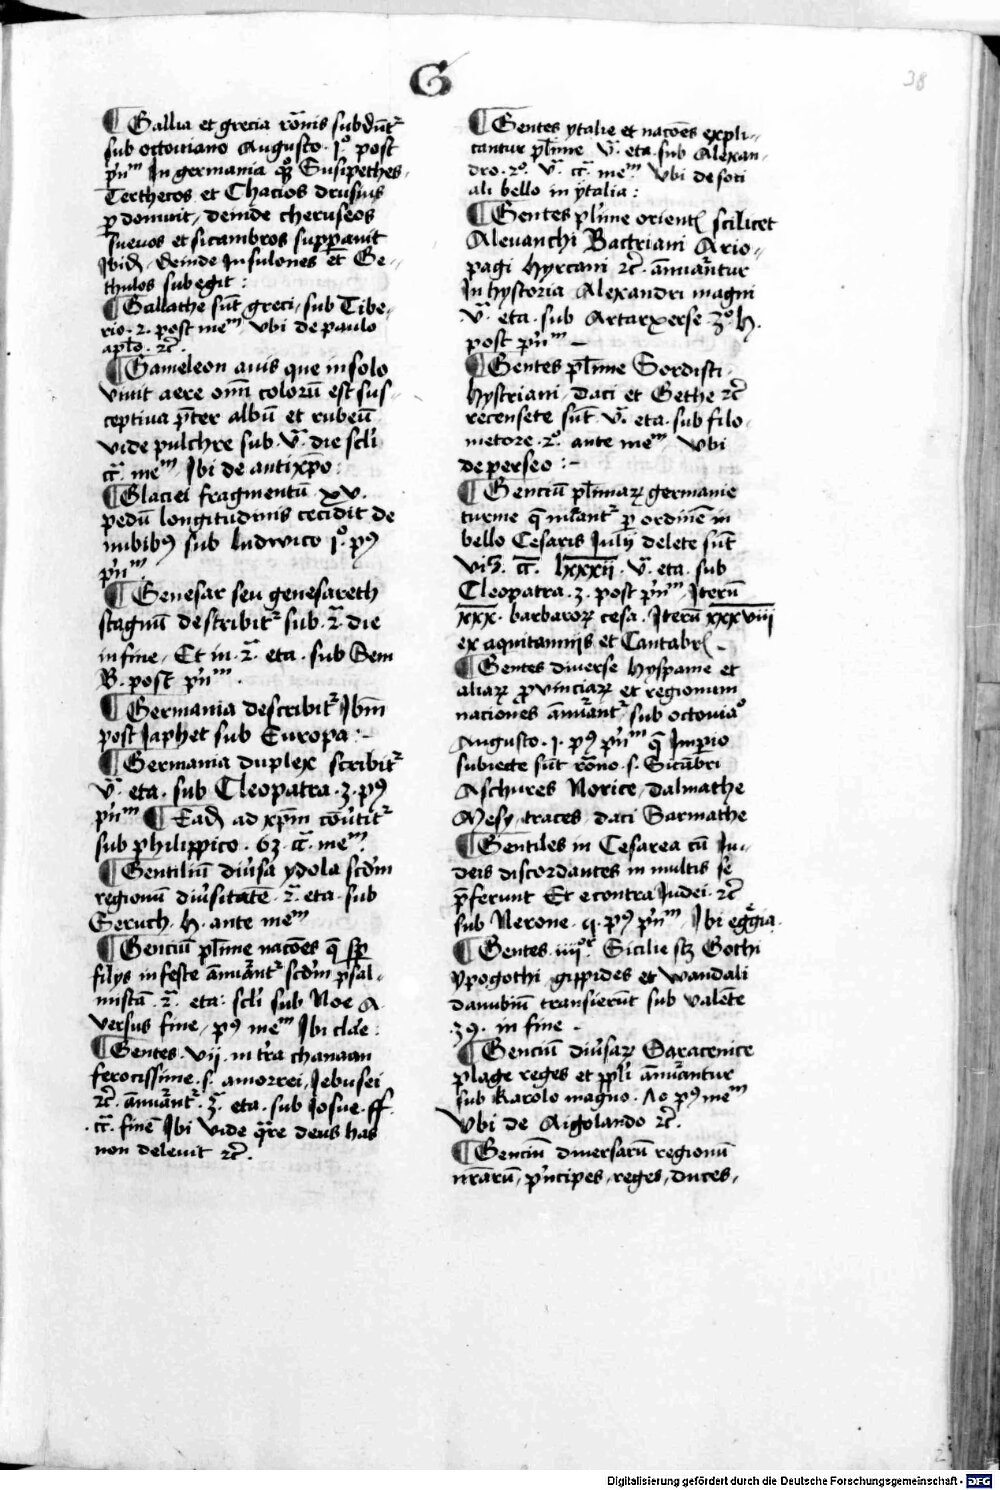 G
38
¶ Gallia et grecia ro̅nis subdūt᷑
sub octouiano Augusto · j° post
pʼmᵐ In germania Susipethes ·
Terthecos et Chacios drusius
ꝑdomuit, deinde cheruseos
sueuos et sicambros supꝑauit
Ibid̄, deinde Insulones et Ge-
thulos subegit :
¶ Gallathe sūt greci, sub Tibe-
rio · 2 · post meᵐ vbi de paulo
apl̄o · ⁊c̄ ·
¶ Gameleon auis que in solo
viuit aere om̅i colorū est sus
ceptiua p̄ter albū et rubeū
vide pulchre sub · v̄ · die scl̄i
c̄r · meᵐ, Ibi de antixp̄o :
¶ Glaciei fragmentū · xv ·
pedū longitudinis cecidit de
nubibꝰ sub ludwico j° · pꝰ
pʼmᵐ ·
¶ Genesar seu genesareth
stagnū describit᷑ sub · 2̄ · die
in fine, Et in · 2̄ · eta · sub Sem
B · post pʼmᵐ ·
¶ Germania describit᷑ Ibm̄
post Japhet sub Europa :-
¶ Germania duplex scribit᷑
v̄ · eta · sub Cleopatra · 3 · pꝰ
pʼmᵐ ¶ Ead̄ ad xp̄m cōūtit᷑
sub philippico · 63 · c̄r · meᵐ
¶ Gentiliū diūsa ydola scd̄m
regionū diūsitatē · 2̄ · eta · sub
Seruch · h · ante meᵐ
¶ Genciū pl̄ime nacōes q̄ sꝑ
filys infeste ānuāt᷑ scd̄m psal-
mistā · 2̄ · eta · scl̄i sub Noe A
versus fine, pꝰ meᵐ Ibi clāe :
¶ Gentes · vij · in tr̄a chanaan
ferocissime · s · amorrei, Jebusei
⁊c̄ · ānuāt᷑ · 3̄ · eta · sub Josue · ff ·
· c̄r · finē Ibi vide q̄re deus has
non deleuit ⁊c̄ ·
¶ Gentes ytalie et nacōes expli-
cantur pl̄ime v̄ · eta · sub Alexan-
dro · 2° · v̄ · c̄r · meᵐ vbi de soci
ali bello in ytalia :
¶ Gentes pl̄ime orient᷑ scilicet
Aleuanchi Bactriani Ario-
pagi hyrcani ⁊c̄ · ānuātur
In hystoria Alexandri magni
· v̄ · eta · sub Artarxerse · 3° · h ·
post pʼmᵐ -
¶ Gentes pl̄ime Sordisti ·
hystriani, daci et Gethe ⁊c̄
recensete sūt · v̄ · eta · sub filo
metore · 2° · ante meᵐ, vbi
de perseo :-
¶ Genciū pl̄imaꝝ germanie
turme q̄ ꝑ ordinē in
bello Cesaris Julij delete sūt
c̄r · lxxxij · v̄ · eta · sub
Cleopatra · 3 · post pʼmᵐ, Iterū
xxx · barbaroꝝ cesa · Iterū xxxviij
ex aquitannijs et Cantabr᷑ -
¶ Gentes diuerse hyspanie et
aliaꝝ ꝓvinciaꝝ et regionum
naciones ānuāt᷑ sub octouiā°
Augusto · j · pꝰ pʼmᵐ q̄ Imperio
subiecte sūt rōno · s · Sicābri
Aschures Norice, Dalmathe
Mesy, traces, daci Sarmathe
¶ Gentiles in Cesarea cū Iu-
deis discordantes in multis se
p̄ferunt Et econtra Judei · ⁊c̄
sub Nerone · q · pꝰ pʼmᵐ, Ibi egḡia ·
¶ Gentes · iiij°ʳ Sicilie scꝫ Gothi
ypogothi, gippides et wandali
danubiū transierūt sub valēte
· 39 · in fine ·
¶ Genciū diūsaꝝ Saracenice
plage reges et ppl̄i ānuātur
sub Karolo magno · Ao pꝰ meᵐ
vbi de Aigolando ⁊c̄ ·
¶ Genciū diuersarū regionū
nr̄arū, pʼncipes, reges, duces,
Digitalisierung gefördert durch die Deutsche Forschungsgemeinschaft - DFG